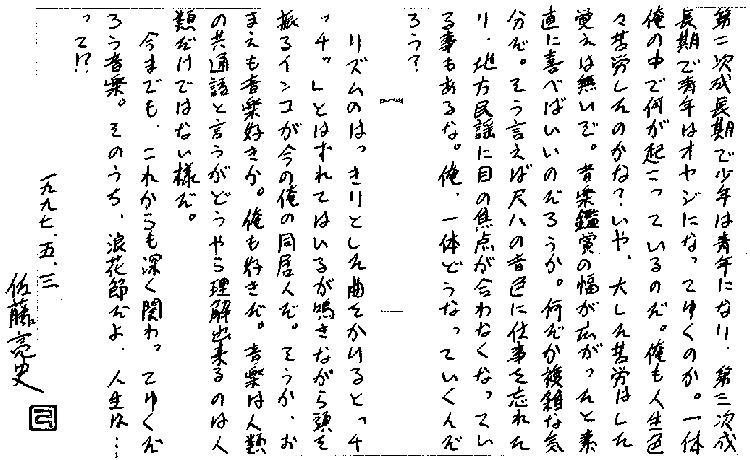 第二次成長期で少年は青年になり、第三次成
長期で青年はオヤジになってゆくのか。一体
俺の中で何が起こっているのだ。俺も人生色
々苦労したのかな?いや、大した苦労はした
覚えは無いぞ。音楽鑑賞の幅が広がったと素
直に喜べばいいのだろうか。何だか複雑な気
分だ。そう言えば尺八の音色に仕事を忘れた
り、地方民謡に目の焦点が合わなくなってい
る事もあるな。俺、一体どうなっていくんだ
ろう?
リズムのはっきりとした曲をかけると「チ
ッチッ」とはずれてはいるが鳴きながら頭を
振るインコが今の俺の同居人だ。そうか、お
まえも音楽好きか。俺も好きだ。音楽は人類
の共通語と言うがどうやら理解出来るのは人
類だけではない様だ。
今までも、これからも深く関わってゆくだ
ろう音楽。そのうち、浪花節だよ、人生は…
って!?
一九九七.五.三
佐藤亮史